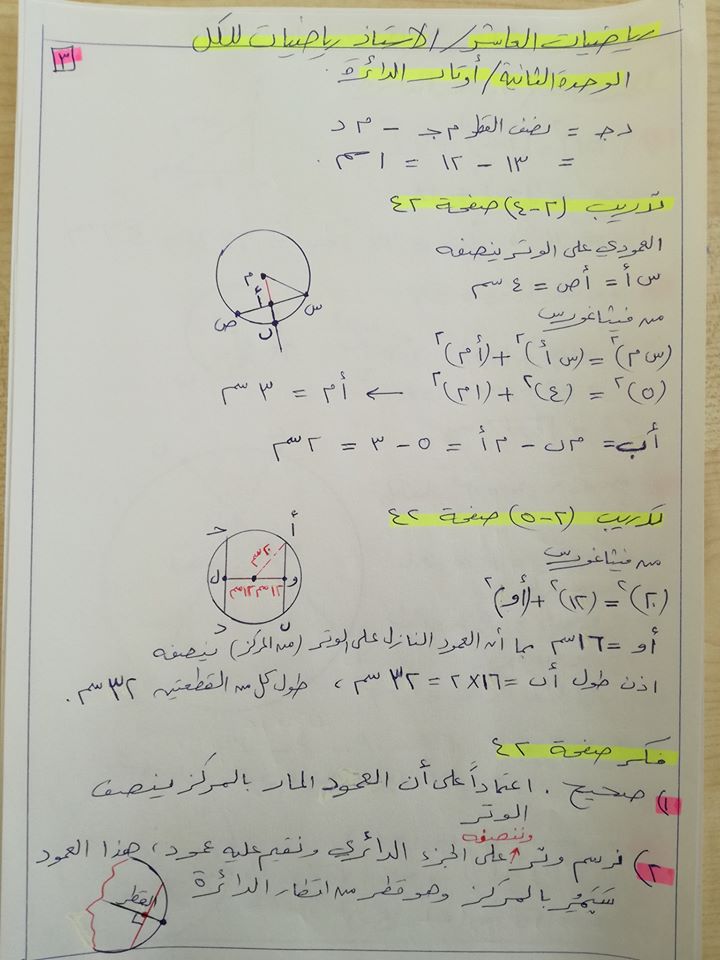 رياضيات العاشر / الاستاذ رياضيات للكل
٣
الوحدة الثانية / أوتار الدائرة
د جـ = نصف القطر م جـ - م د
= ١٣ - ١٢ = ١ سم .
تدريب (٢-٤) صفحة ٤٢
العمودي على الوتر ينصفه
س أ = أ ص = ٤ سم
من فيثاغورس
(س م)٢ = (س أ)٢ + (أ م)٢
(٥)٢ = (٤)٢ + (أ م)٢ ← أ م = ٣ سم
أ ب = م ب - م أ = ٥ - ٣ = ٢ سم
م
أ
س
ص
ب
تدريب (٢-٥) صفحة ٤٢
من فيثاغورس
(٢٠)٢ = (١٢)٢ + (أ و)٢
أ و = ١٦ سم بما أن العمود النازل على الوتر (من المركز) ينصفه
اذن طول أ ب = ١٦×٢ = ٣٢ سم ، طول كل من القطعتين ٣٢ سم .
أ
جـ
٢٠ سم
و
ل
١٢ سم
١٢ سم
ب
د
فكر صفحة ٤٢
١) صحيح . اعتماداً على أن العمود المار بالمركز ينصف
الوتر
٢) نرسم وتر وننصفه على الجزء الدائري ونقيم عليه عمود ، هذا العمود
سَيَمُرُ بالمركز وهو قطر من اقطار الدائرة
القطر